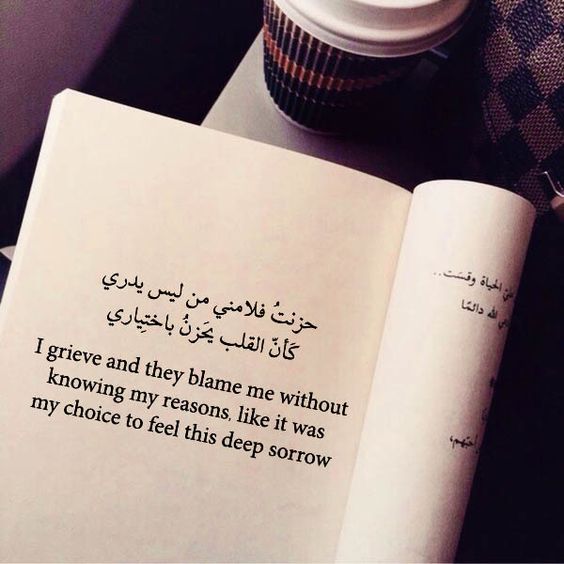 حزنتُ فلامني من ليس يدري
كَأنّ القلب يَحَزنُ باختِياري
I grieve and they blame me without
knowing my reasons, like it was
my choice to feel this deep sorrow
الحياة وقسَت..
الله دائمًا